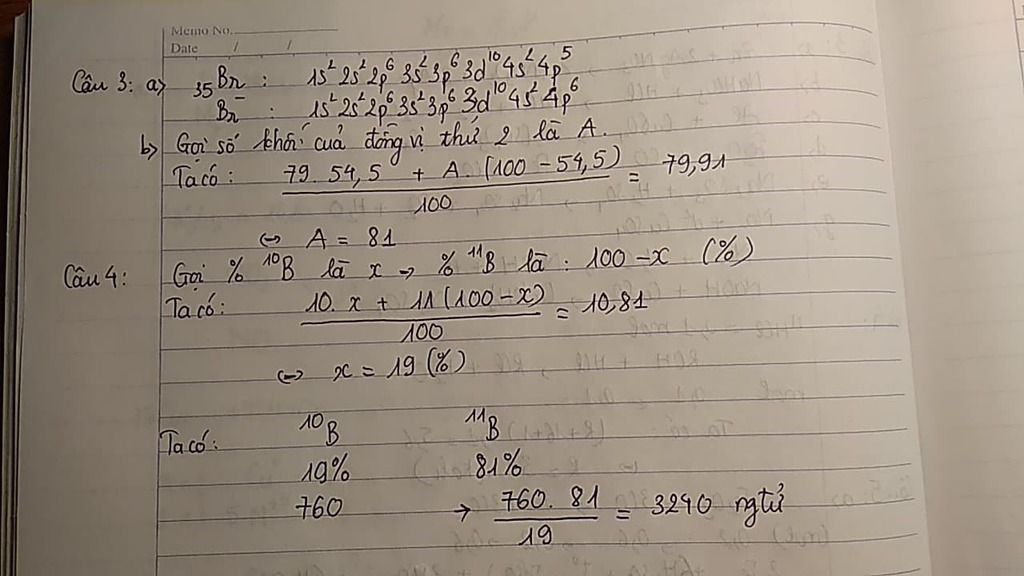 Memo No.
Date / /
Câu 3: a) ₃₅Br : 1s² 2s² 2p⁶ 3s² 3p⁶ 3d¹⁰ 4s² 4p⁵
Br⁻ : 1s² 2s² 2p⁶ 3s² 3p⁶ 3d¹⁰ 4s² 4p⁶
b) Gọi số khối của đồng vị thứ 2 là A.
Ta có: (79. 54,5 + A. (100 - 54,5)) / 100 = 79,91
⇔ A = 81
Câu 4: Gọi % ¹⁰B là x → % ¹¹B là : 100 - x (%)
Ta có: (10. x + 11 (100 - x)) / 100 = 10,81
⇔ x = 19 (%)
Ta có: ¹⁰B ¹¹B
19% 81%
760 → (760. 81) / 19 = 3240 ngtử